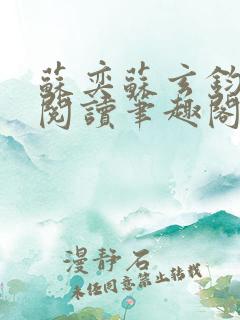 蘇奕蘇玄鈞
閱讀筆趣閣
漫靜石
未经同意禁止转载